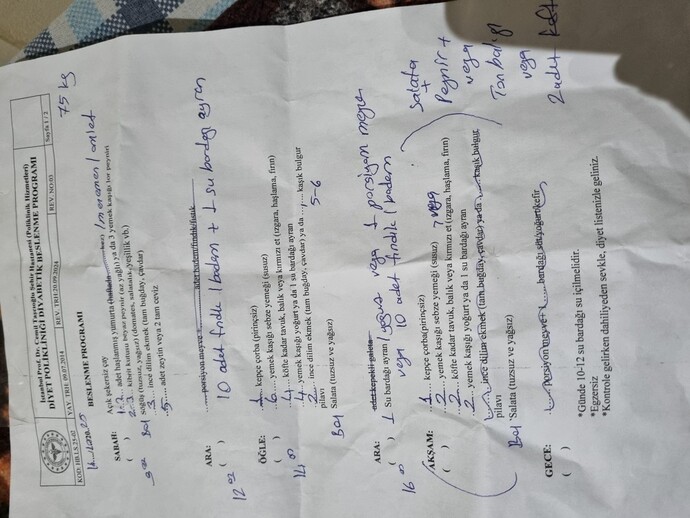 İstanbul Prof. Dr. Cemil Taşcıoğlu Şehir Hastanesi (Poliklinik Hizmetleri)
DİYET POLİKLİNİĞİ DİYABETİK BESLENME PROGRAMI
KOD: HB.LS.25-02
YAY. TRH: 09.07.2014
REV. TRH: 20.09.2024
REV. NO:03
Sayfa 1 / 2
75 kg
BESLENME PROGRAMI
SABAH:
Açık şekersiz çay
1-2 adet haşlanmış yumurta / menemen / omlet
2-3 kibrit kutusu beyaz peynir (az yağlı) ya da 3 yemek kaşığı lor peyniri
Bol Söğüş (tuzsuz, yağsız) (domates, salatalık, yeşillik vb.)
3 ince dilim ekmek (tam buğday, çavdar)
5 adet zeytin veya 2 tam ceviz
ARA:
porsiyon meyve + adet badem/fındık/fıstık
10 adet fındık / badem + 1 su bardağı ayran
ÖĞLE:
1 kepçe çorba (pirinçsiz)
6 yemek kaşığı sebze yemeği (susuz)
4 köfte kadar tavuk, balık veya kırmızı et (ızgara, haşlama, fırın)
4 yemek kaşığı yoğurt ya da 1 su bardağı ayran
2 ince dilim ekmek (tam buğday, çavdar) ya da 5-6 kaşık bulgur
pilavı
Bol Salata (tuzsuz ve yağsız)
ARA:
adet kepekli galeta
1 Su bardağı ayran / yoğurt veya 1 porsiyon meyve
veya 10 adet fındık / badem
AKŞAM:
1 kepçe çorba(pirinçsiz)
2 yemek kaşığı sebze yemeği (susuz) veya
2 köfte kadar tavuk, balık veya kırmızı et (ızgara, haşlama, fırın)
2 yemek kaşığı yoğurt ya da 1 su bardağı ayran
ince dilim ekmek (tam buğday, çavdar) ya da kaşık bulgur
pilavı
Bol Salata (tuzsuz ve yağsız)
Salata
+
Peynir +
veya
Ton balığı
veya
2 adet
GECE:
porsiyon meyve + bardağı süt/yoğurt/kefir
*Günde 10-12 su bardağı su içilmelidir.
*Egzersiz
*Kontrole gelirken dahiliyeden sevkle, diyet listenizle geliniz.